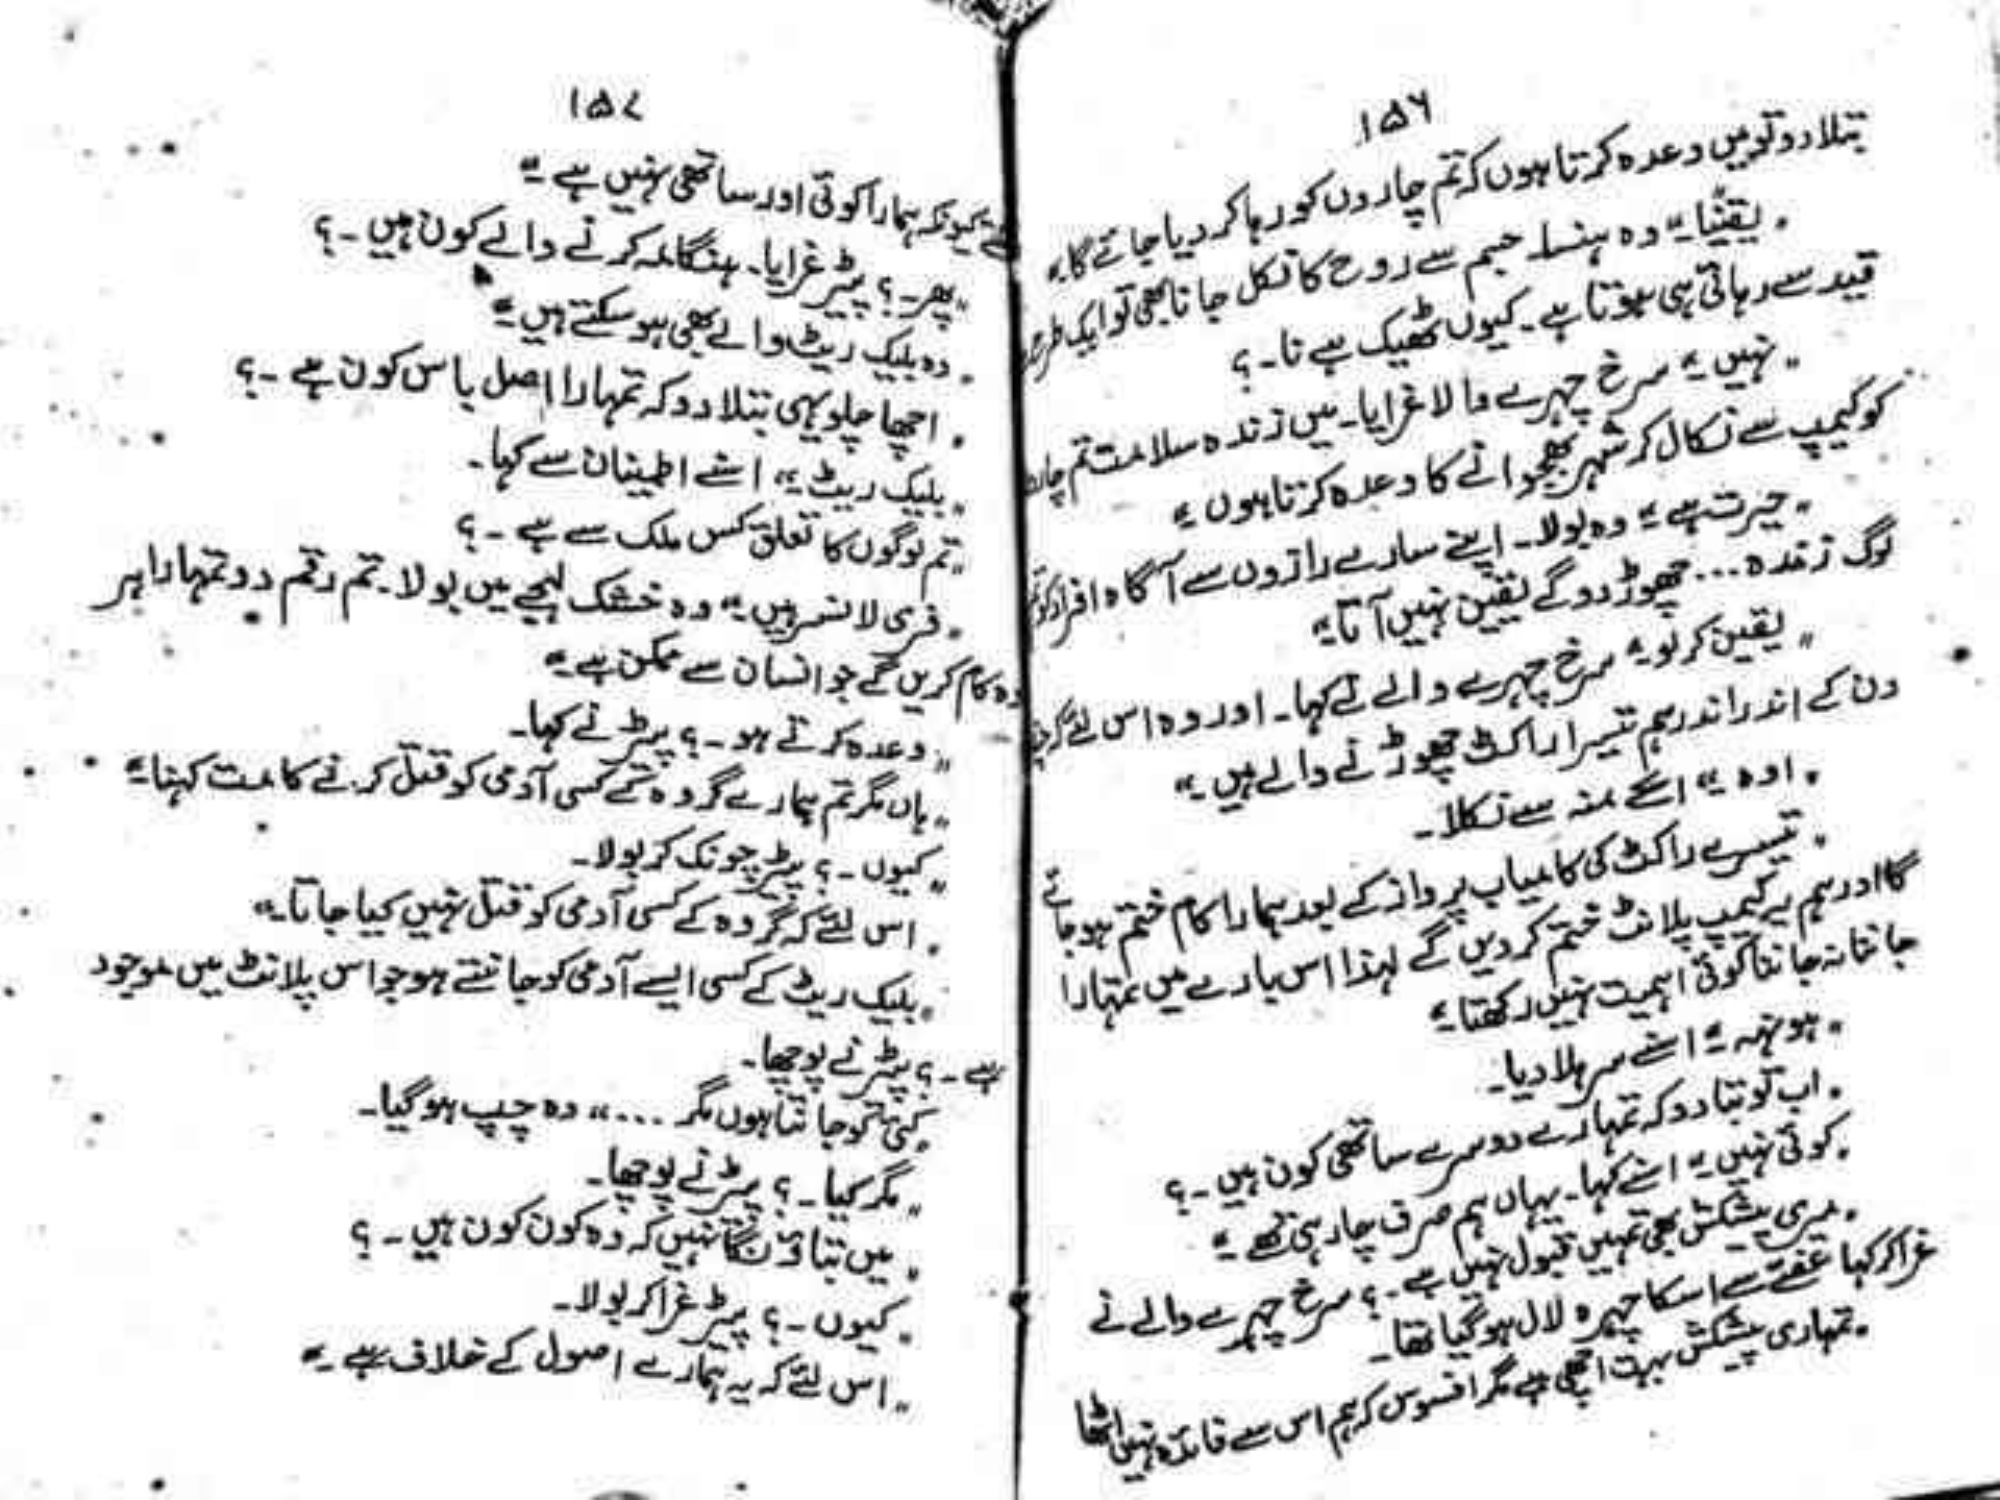 ۱۵۶
بتلا دو تو میں وعدہ کرتا ہوں کہ تم چاروں کو رہا کر دیا جائے گا۔"
"یقیناً۔" وہ ہنسا۔ جسم سے روح کا نکل جانا بھی تو ایک طرح
قید سے رہائی ہی ہوتا ہے۔ کیوں ٹھیک ہے نا۔؟
"نہیں۔" سرخ چہرے والا غرایا۔ میں زندہ سلامت تم
کو کیمپ سے نکال کر شہر بھجوانے کا وعدہ کرتا ہوں۔"
"حیرت ہے۔" وہ بولا۔ اپنے سارے رازوں سے آگاہ افراد کو تم
لوگ زندہ... چھوڑ دو گے یقین نہیں آتا۔"
"یقین کر لو۔" سرخ چہرے والے نے کہا۔ اور وہ اس لئے کہ
دن کے اندر اندر ہم تیسرا راکٹ چھوڑنے والے ہیں۔"
"اوہ۔" اسکے منہ سے نکلا۔
"تیسرے راکٹ کی کامیاب پرواز کے بعد ہمارا کام ختم ہو جائے
گا اور ہم یہ کیمپ پلانٹ ختم کر دیں گے لہذا اس بارے میں تمہارا
جاننا نہ جاننا کوئی اہمیت نہیں رکھتا۔"
"ہونہہ۔" اسنے سر ہلا دیا۔
"اب تو بتا دو کہ تمہارے دوسرے ساتھی کون ہیں۔؟
"کوئی نہیں۔" اسنے کہا۔ یہاں ہم صرف چار ہی تھے۔"
"میری پیشکش بھی تمہیں قبول نہیں ہے۔؟ سرخ چہرے والے نے
غرا کر کہا غصے سے اسکا چہرہ لال ہو گیا تھا۔
"تمہاری پیشکش بہت اچھی ہے مگر افسوس کہ ہم اس سے فائدہ نہیں اٹھا
۱۵۷
کیونکہ ہمارا کوئی اور ساتھی نہیں ہے۔"
"پھر۔؟ پیٹر غرایا۔ ہنگامہ کرنے والے کون ہیں۔؟
"وہ بلیک ریٹ والے بھی ہو سکتے ہیں۔"
"اچھا چلو یہی بتلا دو کہ تمہارا اصل باس کون ہے۔؟
"بلیک ریٹ۔" اسنے اطمینان سے کہا۔
"تم لوگوں کا تعلق کس ملک سے ہے۔؟
"فری لانسر ہیں۔" وہ خشک لہجے میں بولا۔ تم رقم دو تمہارا ہر
وہ کام کریں گے جو انسان سے ممکن ہے۔"
"وعدہ کرتے ہو۔؟ پیٹر نے کہا۔
"ہاں مگر تم ہمارے گروہ کے کسی آدمی کو قتل کرنے کا مت کہنا۔"
"کیوں۔؟ پیٹر چونک کر بولا۔
"اس لئے کہ گروہ کے کسی آدمی کو قتل نہیں کیا جاتا۔"
"بلیک ریٹ کے کسی ایسے آدمی کو جانتے ہو جو اس پلانٹ میں موجود
ہے۔؟ پیٹر نے پوچھا۔
"کئی کو جانتا ہوں مگر ...." وہ چپ ہو گیا۔
"مگر کیا۔؟ پیٹر نے پوچھا۔
"میں بتاؤں گا نہیں کہ وہ کون کون ہیں۔؟
"کیوں۔؟ پیٹر غرا کر بولا۔
"اس لئے کہ یہ ہمارے اصول کے خلاف ہے۔"